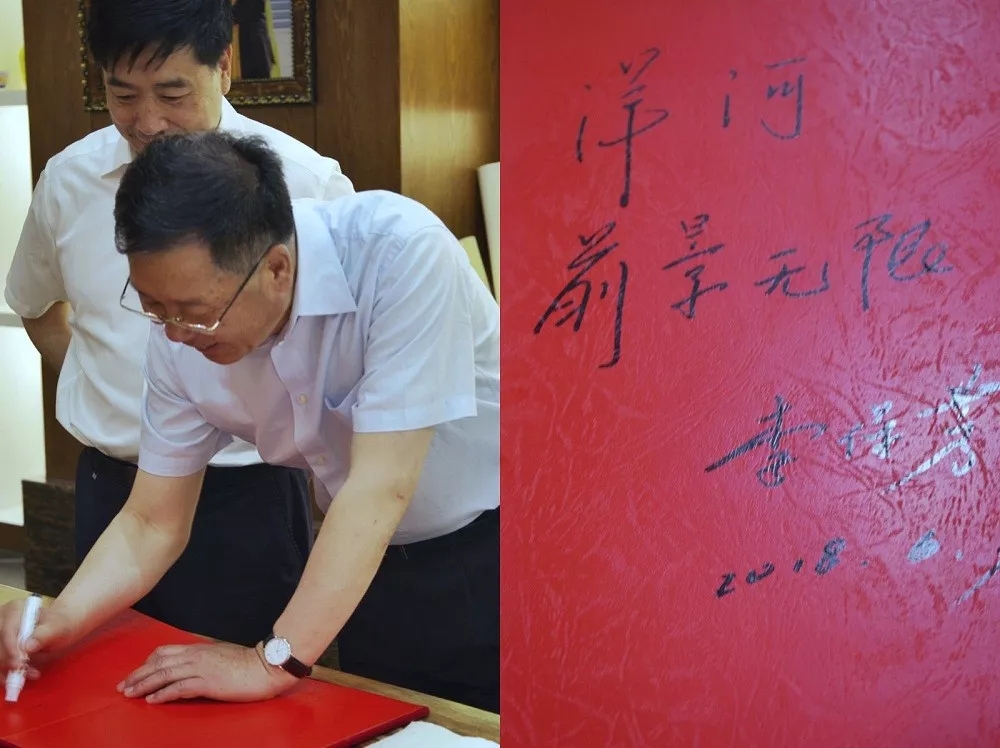 洋河
前景无限
李保芳
2018.6.